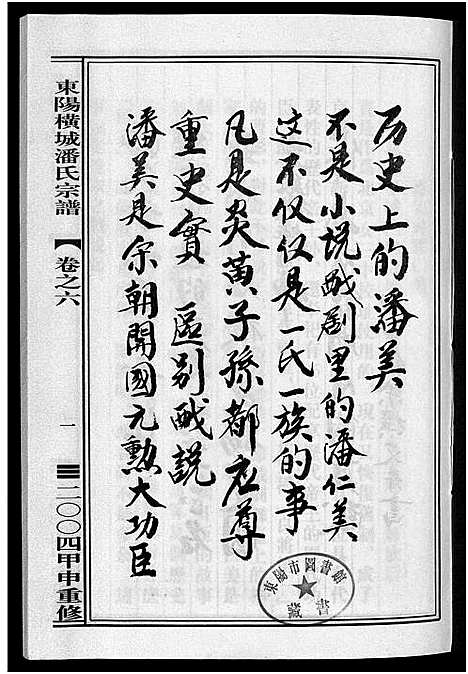 历史上的潘美
不是小说戏剧里的潘仁美
这不仅仅是一氏一族的事
凡是炎黄子孫都应尊
重史實 區别戯説
潘美是宋朝開國元勳大功臣
東陽橫城潘氏宗譜
【卷之六
一
二〇〇四甲申重修
東陽市圖書館
藏書